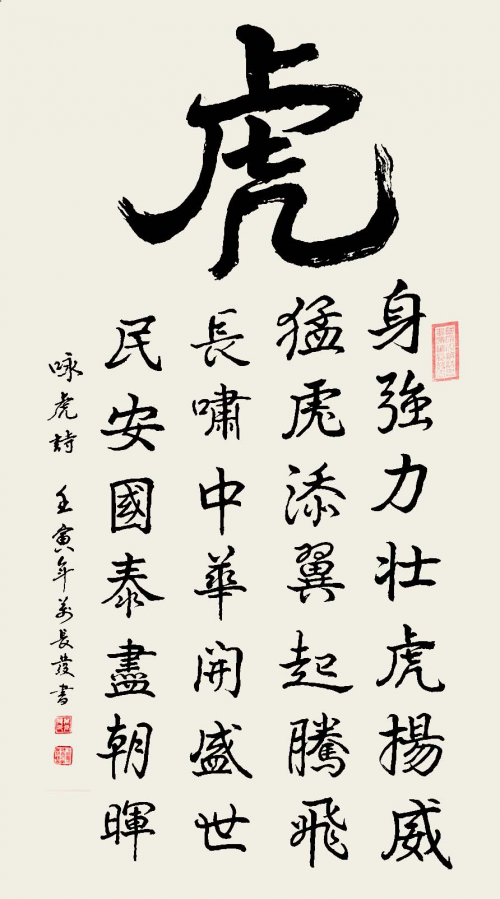 虎
身強力壯虎揚威
猛虎添翼起騰飛
長嘯中華開盛世
民安國泰盡朝暉
咏虎詩 壬寅年萬長發書